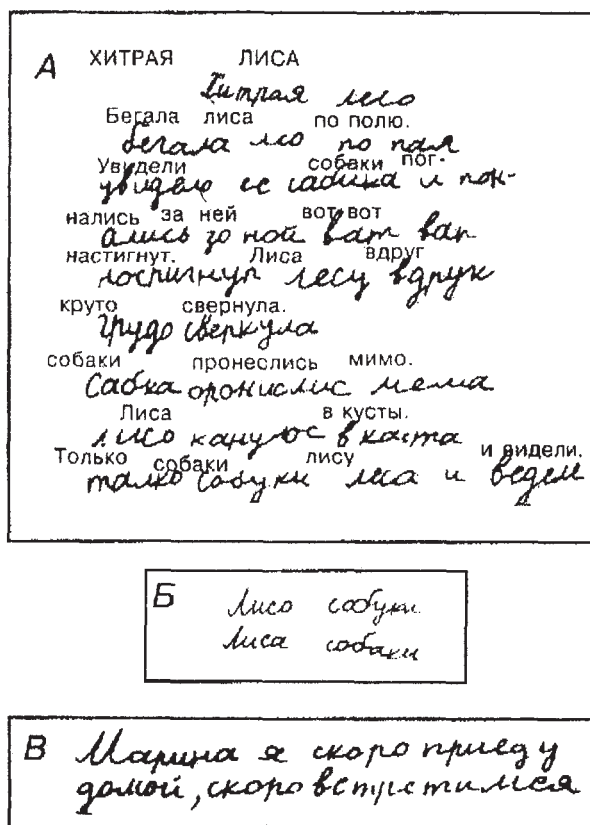 А ХИТРАЯ ЛИСА
Хитрая лисо
Бегала лиса по полю.
бегала лсо по паля
Увидели собаки пог-
увидею ее сабика и пон-
нались за ней вот вот
ались зо ной ват вап
настигнут. Лиса вдруг
носпигнуп лесу вдрук
круто свернула.
грудо сверкула
собаки пронеслись мимо.
Сабка оронислис мема
Лиса в кусты.
лисо канулос в каста
Только собаки лису и видели.
талко собуки лса и ведем
Б Лисо собуки
Лиса собаки
В Марина я скоро приеду
домой, скоро встретимся